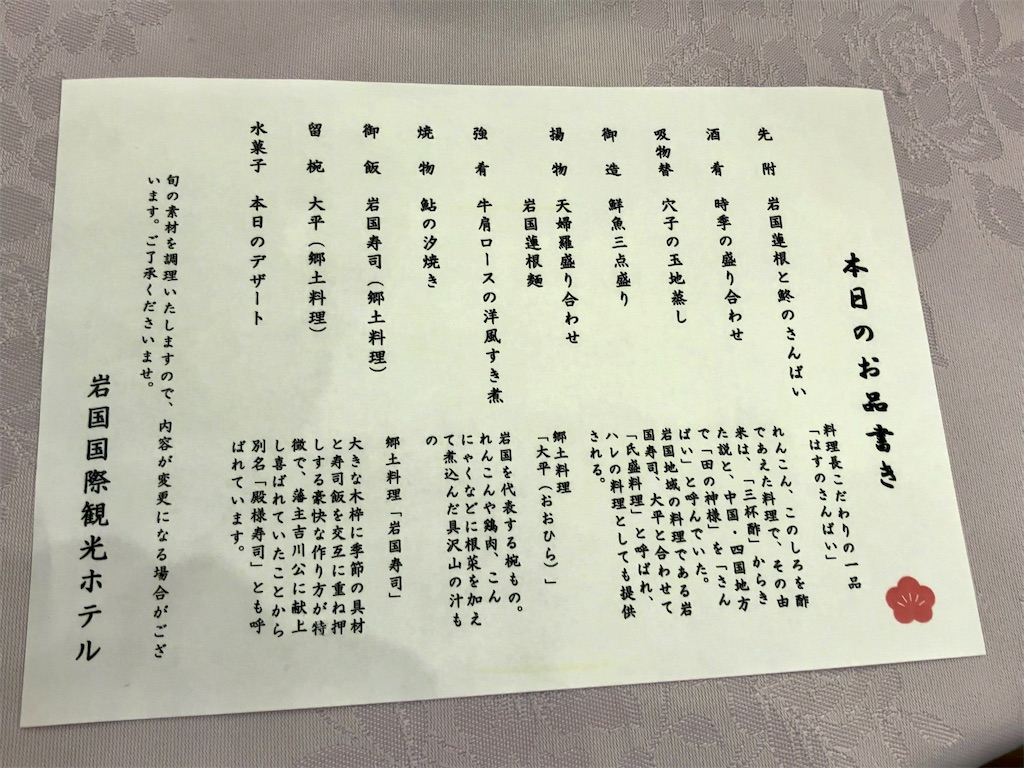 本日のお品書き
先附 岩国蓮根と鮗のさんばい
酒肴 時季の盛り合わせ
吸物替 穴子の玉地蒸し
御造 鮮魚三点盛り
揚物 天婦羅盛り合わせ
岩国蓮根麺
強肴 牛肩ロースの洋風すき煮
焼物 鮎の汐焼き
御飯 岩国寿司（郷土料理）
留椀 大平（郷土料理）
水菓子 本日のデザート
料理長こだわりの一品
「はすのさんばい」
れんこん、このしろを酢
であえた料理で、その由
来は、「三杯酢」からき
た説と、中国・四国地方
で「田の神様」を「さん
ばい」と呼んでいた。
岩国地域の料理である岩
国寿司、大平と合わせて
「氏盛料理」と呼ばれ、
ハレの料理としても提供
される。
郷土料理
「大平（おおひら）」
岩国を代表する椀もの。
れんこんや鶏肉、こん
にゃくなどに根菜を加え
て煮込んだ具沢山の汁も
の
郷土料理「岩国寿司」
大きな木枠に季節の具材
と寿司飯を交互に重ね押
しする豪快な作り方が特
徴で、藩主吉川公に献上
し喜ばれていたことから
別名「殿様寿司」とも呼
ばれています。
旬の素材を調理いたしますので、内容が変更になる場合がござ
います。ご了承くださいませ。
岩国国際観光ホテル